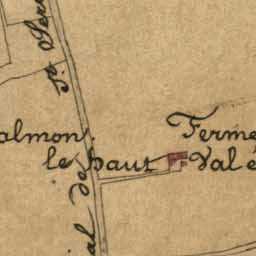 St Ser
almon
le haut
Ferme
Val é
al de